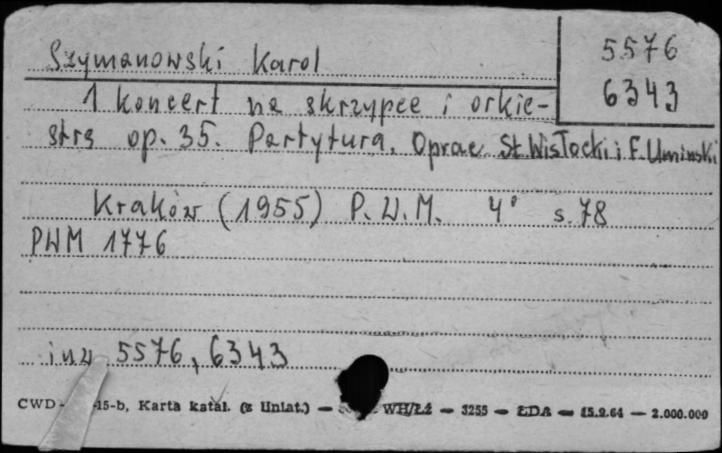 Szymanowski Karol
5576
6343
1 koncert na skrzypce i orkie-
strę op. 35. Partytura. Oprac. St. Wisłocki i F. Umiński
Kraków (1955) P.W.M. 4° s. 78
PWM 1776
inw 5576, 6343
CWD - 15-b, Karta katal. (z liniat.) — WH/Łż — 3255 — ŁDA — 15.2.64 — 2.000.000